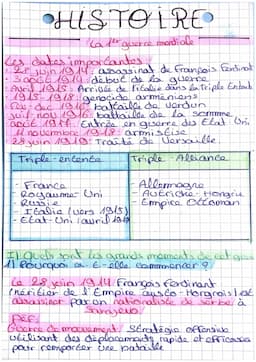 HISTOIRE
La 1ère guerre mondiale
Les dates importantes
- 28 juin 1914 : assassinat de François Ferdinat
- 3 août 1914 : début de la guerre
- Avril 1915 : Arrivée de l'italie dans la Triple Entente
- 1915 - 1916 : génocide arméniens
Fév - déc 1916 : bataille de verdun
juil - nov 1916 : bataille de la somme
avril 1917 : Entrée en guerre des Etat - Uni
11 novembre 1918 : armistice
28 juin 1919 : Traité de Versaille
Triple-entente
Triple - Alliance
- France
- Royaume - Uni
- Russie
- Italie (vers 1915)
- Etat - Uni (avril 1917)
- Allemagne
- Autriche - Hongrie
- Empire Ottoman
I) Quels sont les grands moments de cet
1) Pourquoi a - t - elle commencer ?
Le 28 juin 1914 François Ferdinant
(héritier de l'Empire austro-Hongrois) est
assassiner par un nationaliste de serbe à
Sarajevo
DEF:
Guerre de mouvement : Stratégie offensive
utilisant des déplacements rapide et efficaces
pour remporter une bataille